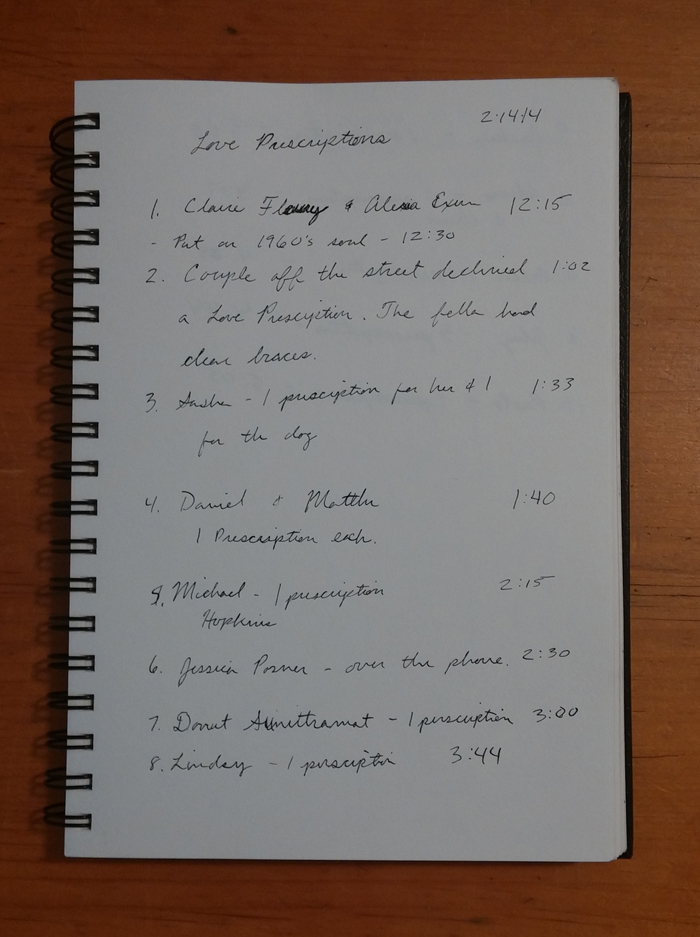 2·14/4
Love Prescriptions
1. Claire & Alexia Exum 12:15
- Put on 1960's soul - 12:30
2. Couple off the street declined 1:02
a Love Prescription. The fella had
clear braces.
3. Sasha - 1 prescription for her & 1 1:33
for the dog
4. Daniel & Matthew 1:40
1 Prescription each.
5. Michael - 1 prescription 2:15
Hopkins
6. Jessica Posner - over the phone. 2:30
7. Donut - 1 perscription 3:00
8. Lindsay - 1 perscription 3:44